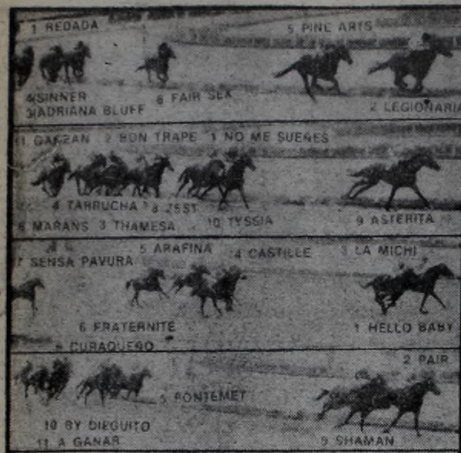 1 REDADA
5 PINE ARTS
4 SINNER
6 FAIR SEX
3 ADRIANA BLUFF
2 LEGIONARIA
11 GARZAN 2 BON TRAPE 1 NO ME SUENES
4 TARRUCHA 8 ZEST
MARANS 3 THAMESA 10 TYSSIA 9 ASTERITA
5 ARAFINA 4 CASTILLE 3 LA MICHI
SENSA PAVURA
6 FRATERNITE
1 HELLO BABY
CURAQUEÑO
2 PAIR
5 PONTEMET
10 BY DIEGUITO
11 A GANAR
9 SHAMAN